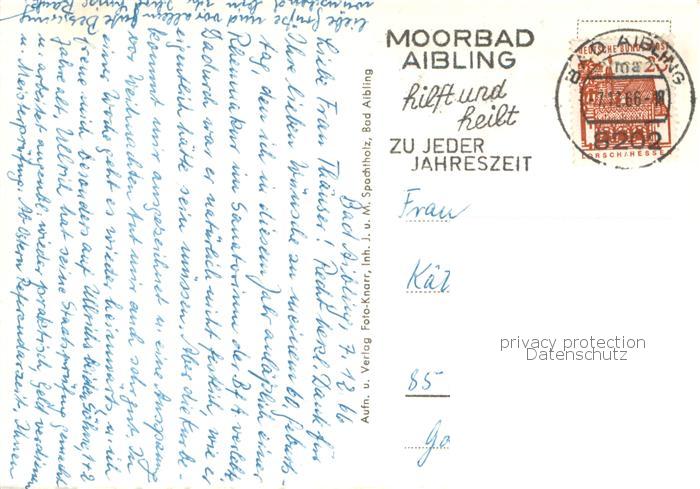 MOORBAD
AIBLING
hilft und
heilt
ZU JEDER
JAHRESZEIT
DEUTSCHE BUNDESPOST
LORSCH/HESSEN
BAD AIBLING
8202
Frau
Kät
85
Go
privacy protection
Datenschutz
Aufn. u. Verlag Foto-Knarr, Inh. J. u. M. Spachtholz, Bad Aibling
Bad Aibling, 7. 12. 66
Liebe Frau Thäuser! Recht herzl. Dank für
Ihre lieben Wünsche zu meinem 60. Geburts-
tag, den ich in diesem Jahr anläßlich einer
Rheuma Kur im Sanatorium der BfA verlebte.
Dadurch war es natürlich nicht festlich, wie er
eigentlich hätte sein müssen. Aber die Kur be-
kommt mir ausgezeichnet u. eine Ausspannung
vor Weihnachten tut mir auch sehr gut. In
einer Woche geht es wieder heimwärts u. ich
freue mich besonders auf Ullrichs beiden Söhne, 1 + 2
Jahre alt. Ullrich hat seine Staatsprüfung gemacht
u. arbeitet augenbl. wieder praktisch, Geld verdienen
u. Meisterprüfung. Ab Ostern Referendarzeit. Ihnen
liebe Grüße und vor allem gute Besserung